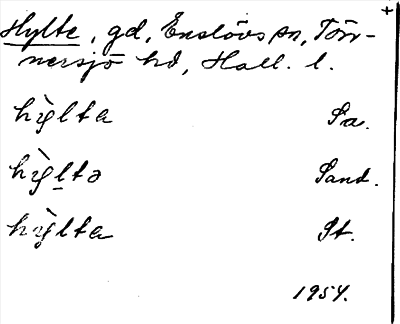 Hylte, gd, Enslövs sn, Tön-
nersjö hd, Hall. l. +
hỳlta Sa.
hỳl̲tə Sand.
hỵ̀lta St.
1954.